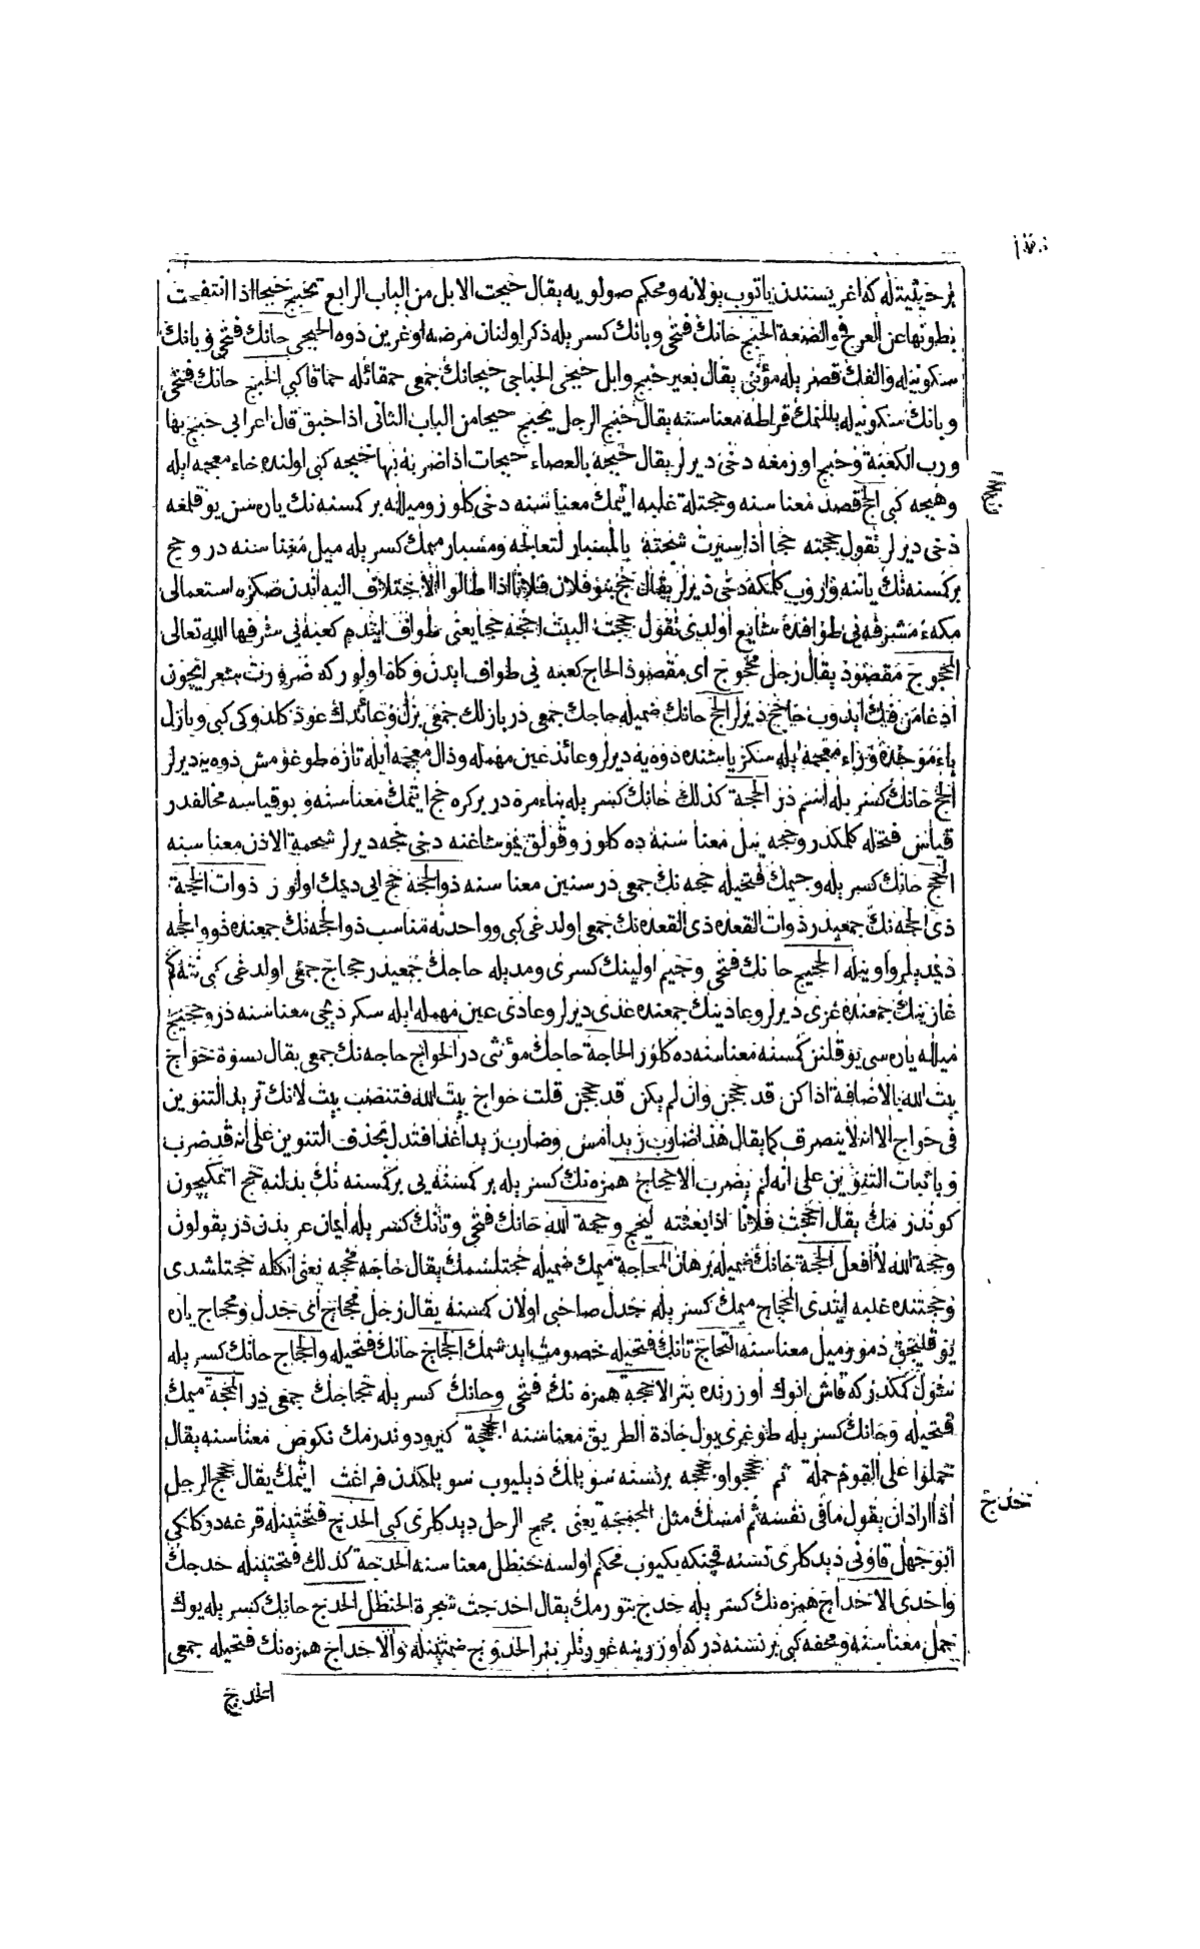 بر حيثيتله كه اغريسندن ياتوب بؤلانه ومحكم صولويه يقال حبجت الابل من الباب الرابع تحبج حبجا اذا انتفخت
بطونها عن العرفج والضعة الحبج حانك فتحى وبانك كسريله ذكر اولنان مرضه اوغرين دوه الحبجى حانك فتحى وبانك
سكونيله والفك قصريله مؤنثى يقال بعير حبج وابل حبجى الحباجى حبجانك جمعى حمقائله حماقا كبى الحبج حانك فتحى
وبانك سكونيله يللنمك قراطه معناسنه يقال حبج الرجل يحبج حبجا من الباب الثانى اذا خبق قال اعرابى حبج بها
ورب الكعبة وحبج اورمغه دخى ديرلر يقال حبجه بالعصاء حبجات اذا ضربه بها خبجه كبى اولنده خاء معجمه ايله
وهبجه كبى الحج قصد معناسنه وحجتله غلبه ايتمك معناسنه دخى كلور وميلله بر كمسنه نك ياره سن يوقلمغه
دخى ديرلر تقول حججته حجا اذا سبرت شجته بالمسبار لتعالجه ومسبار ميمك كسريله ميل معناسنه در وحج
بر كمسنه نك ياننه واروب كلمكه دخى ديرلر يقال حج بنو فلان فلانا اذا اطالوا الاختلاف اليه اندن صكره استعمالى
مكهء مشرفه يى طوافده شايع اولدى تقول حججت البيت احجه حجا يعنى طواف ايتدم كعبه يى شرفها الله تعالى
المحجوج مقصود يقال رجل محجوج اى مقصود الحاج كعبه يى طواف ايدن وكاه اولور كه ضرورت شعر ايچون
ادغامن فك ايدوب حاجج ديرلر الحج حانك ضميله حاجك جمعى در بازلك جمعى بزل وعائذك عوذ كلدوكى كبى وبازل
باء موحده وزاء معجمه ايله سكز ياشنده دوه يه ديرلر وعائذ عين مهمله وذال معجمه ايله تازه طوغرمش دوه يه ديرلر
الحج حانك كسريله اسم در الحجة كذلك حانك كسريله بناء مره در بر كره حج ايتمك معناسنه وبو قياسه مخالفدر
قياس فتحله كلمكدر وحجه ييل معناسنه ده كلور وقولق يموشاغنه دخى حجه ديرلر شحمة الاذن معناسنه
الحجج حانك كسريله وجيمك فتحيله حجه نك جمعى در سنين معناسنه ذو الحجة حج ايى ديمك اولور ذوات الحجة
ذى الحجه نك جمعيدر ذوات القعده ذى القعده نك جمعى اولدغى كبى وواحدنه مناسب ذو الحجه نك جمعنده ذوو الحجه
ديمديلر واويله الحجيج حانك فتحى وجيم اولينك كسرى ومديله حاجك جمعيدر حجاج جمعى اولدغى كبى نته كم
غازينك جمعنده غزى ديرلر وعادينك جمعنده عدى ديرلر وعادى عين مهمله ايله سكردجى معناسنه در وحجيج
ميلله ياره سى يوقلنن كمسنه معناسنه ده كلور الحاجة حاجك مؤنثى در الحواج حاجه نك جمعى يقال نسوة حواج
بيت الله بالاضافة اذا كن قد حججن وان لم يكن قد حججن قلت حواج بيت الله فتنصب بيت لانك تريد التنوين
فى حواج الا انه لا ينصرف كما يقال هذا ضارب زيد امس وضارب زيدا غدا فتدل بحذف التنوين على انه قد ضرب
وباثبات التنوين على انه لم يضرب الاحجاج همزه نك كسريله بر كمسنه يى بر كمسنه نك بدلنه حج اتمكيچون
كوندرمك يقال احججت فلانا اذا بعثته ليحج وحجة الله حانك فتحى وتانك كسريله ايمان عربدندر يقولون
وحجة الله لا افعل الحجة حانك ضميله برهان المحاجة ميمك ضميله حجتلشمك يقال حاجه فحجه يعنى انكله حجتلشدى
وحجتنده غلبه ايتدى المحجاج ميمك كسريله جدل صاحبى اولان كمسنه يقال رجل محجاج اى جدل ومحجاج ياره
يوقليجق دمور ميل معناسنه التحاج تانك فتحيله خصومت ايدشمك الحجاج حانك فتحيله والحجاج حانك كسريله
شول كمكدر كه قاش انوك اوزرنده بتر الاحجة همزه نك فتحى وحانك كسريله حجاجك جمعى در المحجة ميمك
فتحيله وحانك كسريله طوغرى يول جادة الطريق معناسنه الحججة كيرودوندرمك نكوص معناسنه يقال
حملوا على القوم حملة ثم حججوا وحججه بر نسنه سويلمك ديليوب سويلمكدن فراغت ايتمك يقال حجج الرجل
اذا اراد ان يقول ما فى نفسه ثم امسك مثل المجمجة يعنى مجمج الرجل ديدكلرى كبى الحدج فتحتينله قرغه دولكى
ابو جهل قاونى ديدكلرى نسنه قچنكه بكيوب محكم اولسه حنظل معناسنه الحدجة كذلك فتحتينله حدجك
واحدى الاحداج همزه نك كسريله حدج بتورمك يقال احدجت شجرة الحنظل الحدج حانك كسريله يوك
حمل معناسنه ومحفه كبى بر نسنه در كه اوزرينه عورتلر بنر الحدوج ضمتينله والاحداج همزه نك فتحيله جمعى
حدج
الحدج